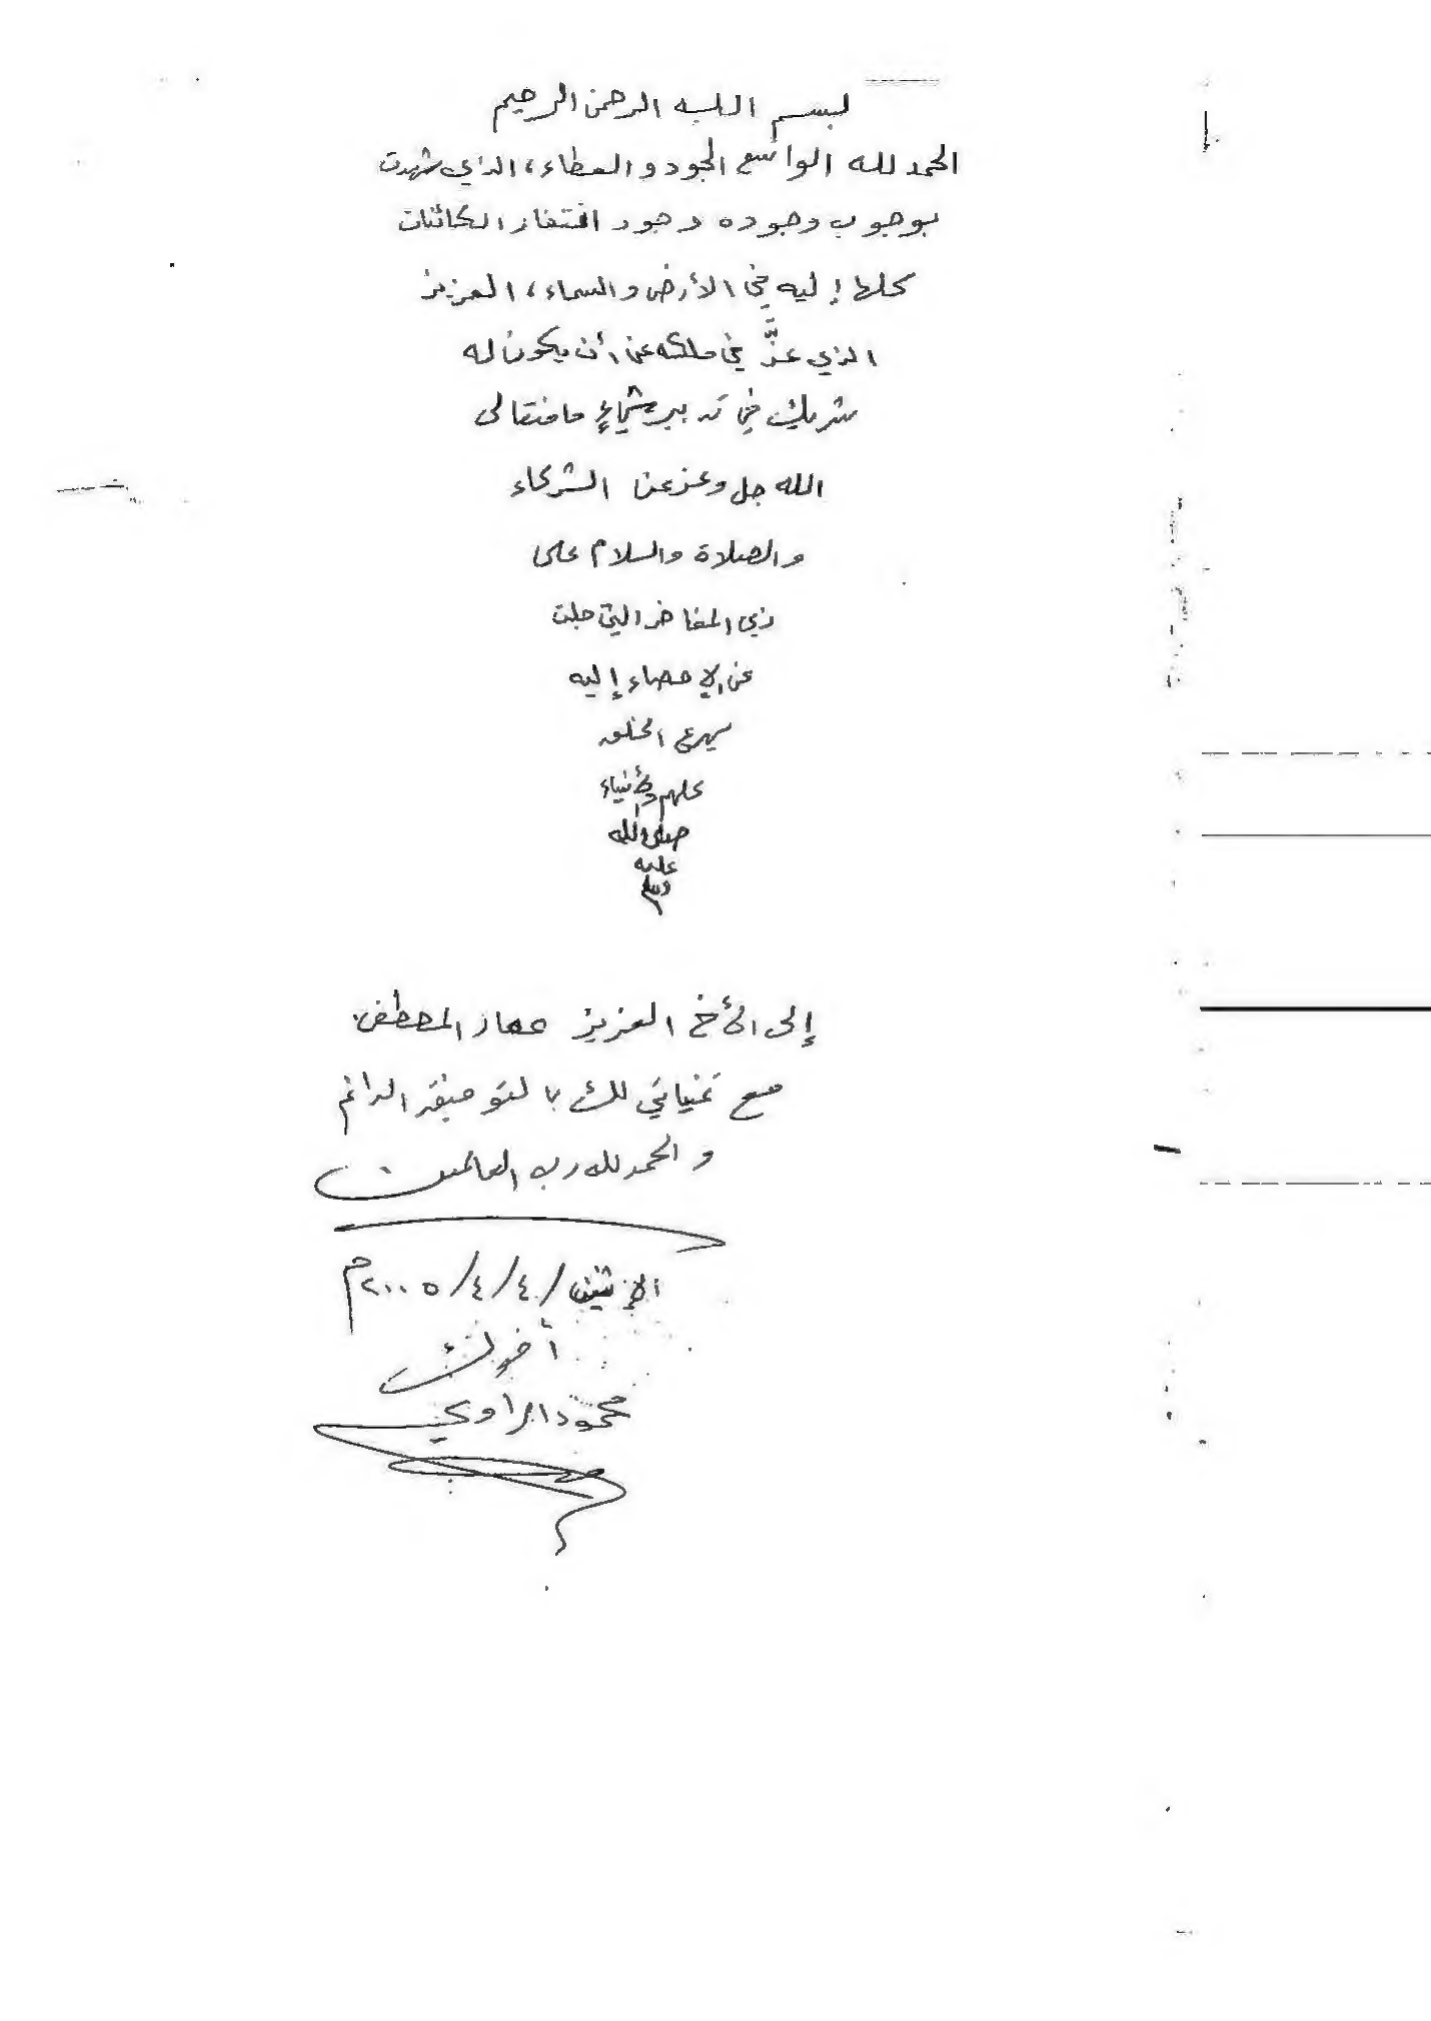 بسم الله الرحمن الرحيم
الحمد لله الواسع الجود والعطاء، الذي شهدت
بوجوب وجوده وجود افتقار الكائنات
كلها إليه في الأرض والسماء، العزيز
الذي عزَّ في ملكه عن أن يكون له
شريك في تدبير شيءٍ ما فتعالى
الله جل وعز عن الشركاء
والصلاة والسلام على
ذي المفاخر التي جلت
عن الإحصاء إليه
يهرع الخلق
كلهم والأنبياء
صلى الله
عليه
وسلم
إلى الأخ العزيز المصطفى
مع تمنياتي لك بالتوفيق الدائم
والحمد لله رب العالمين
الإثنين / ٤ / ٤ / ٢٠٠٥م
أخوك
محمود